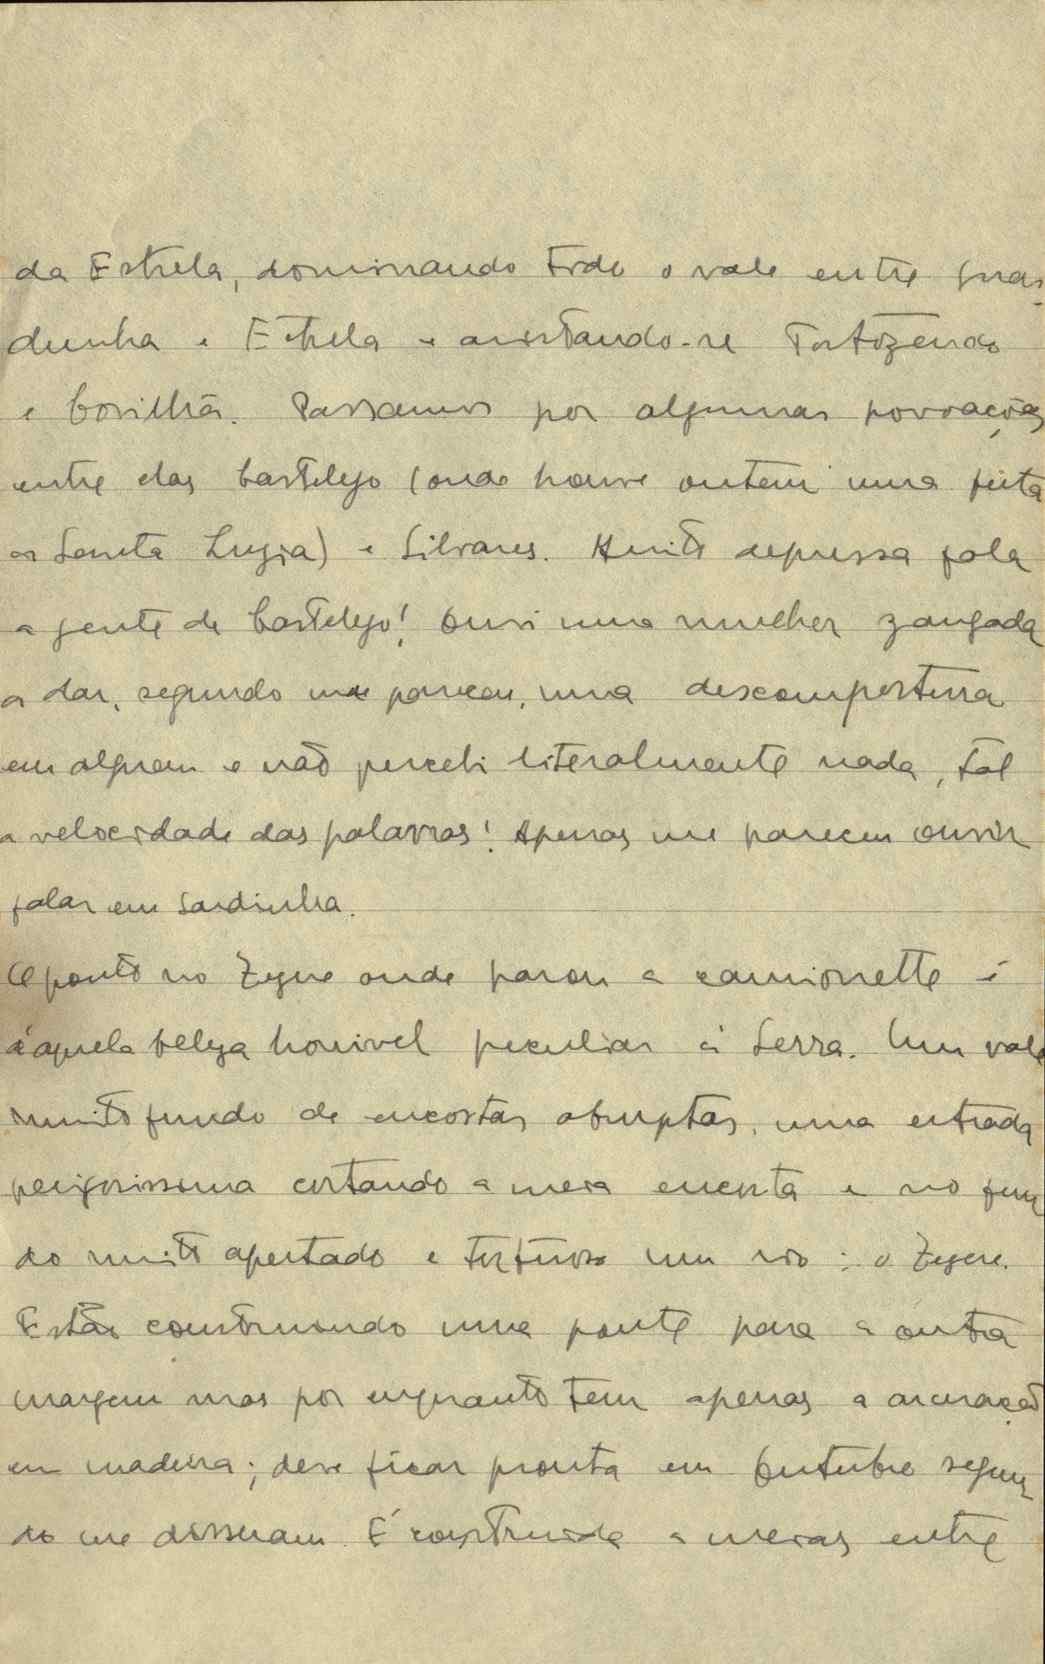 da Estrela, dominando todo o vale entre Guar-
dunha e Estrela e avistando-se Tortozendo
e Covilhã. Passamos por algumas povoações
entre elas Castelejo (onde houve ontem uma festa
a Santa Luzia) e Silvares. Muito depressa fala
a gente de Castelejo! Ouvi uma mulher zangada
a dar, segundo me pareceu, uma descompostura
em alguem e não percebi literalmente nada, tal
a velocidade das palavras! Apenas me pareceu ouvir
falar em sardinha.
O ponto no Zezere onde parou a camionette é
daquela beleza horrivel peculiar á Serra. Um vale
muito fundo de encostas abruptas, uma estrada
perigosissima cortando a meia encosta e no fun
do muito apertado e tortuoso um rio: o Zezere.
Estão construindo uma ponte para a outra
margem mas por enquanto tem apenas a armação
em madeira; deve ficar pronta em Outubro segun
do me disseram. É construida a meias entre